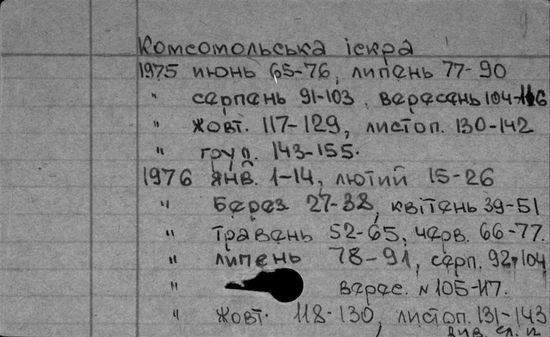 Комсомольська іскра
1975 июнь 65-76, липень 77-90
" серпень 91-103, вересень 104-116
" жовт. 117-129, листоп. 130-142
" груд. 143-155.
1976 янв. 1-14, лютий 15-26
" Берез 27-38, квітень 39-51
" травень 52-65, черв. 66-77.
" липень 78-91, серп. 92-104
" верес. №105-117.
" жовт. 118-130, листоп. 131-143
див. сл. к